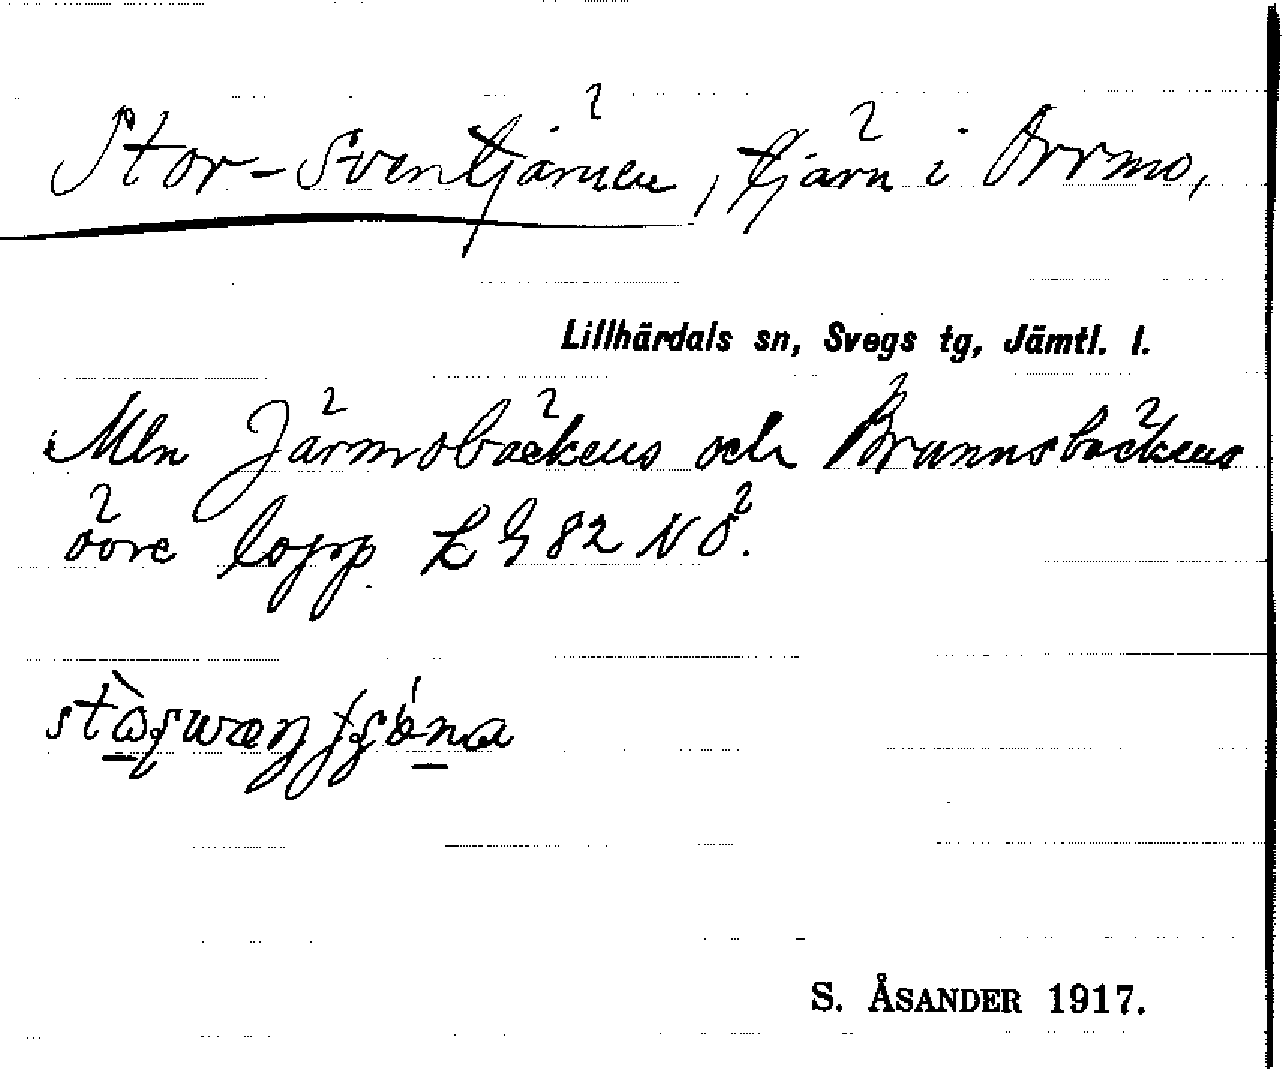 Stor-Sventjärnen, tjärn i Orrmo,
Lillhärdals sn, Svegs tg, Jämtl. l.
Mln Järmsbäckens och Brunnsbäckens
övre lopp. LG 82 NÖ.
S. ÅSANDER 1917.